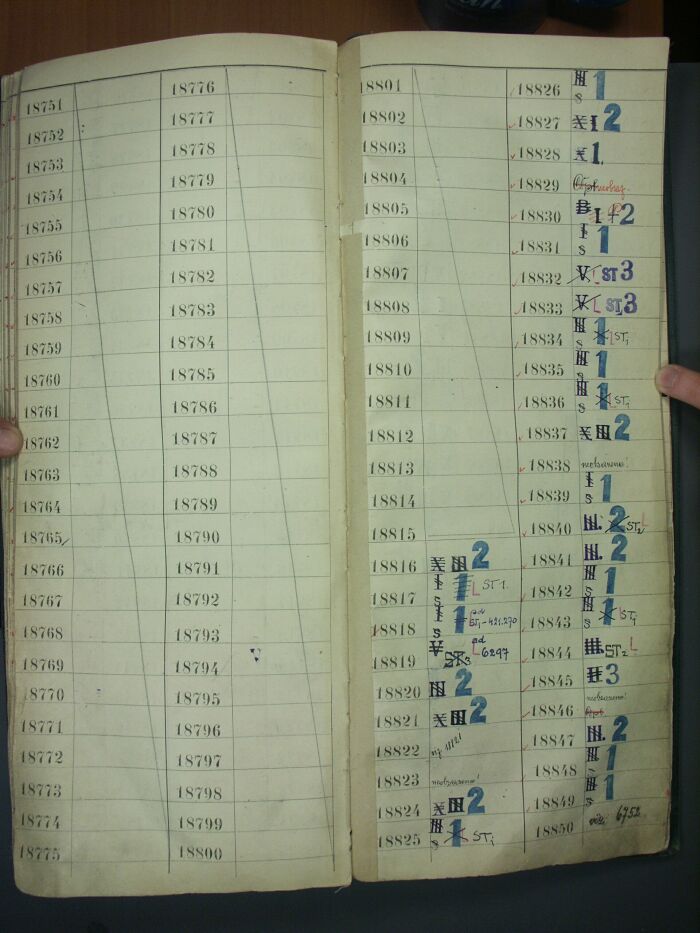 18751
18752
18753
18754
18755
18756
18757
18758
18759
18760
18761
18762
18763
18764
18765
18766
18767
18768
18769
18770
18771
18772
18773
18774
18775
18776
18777
18778
18779
18780
18781
18782
18783
18784
18785
18786
18787
18788
18789
18790
18791
18792
18793
18794
18795
18796
18797
18798
18799
18800
18801
18802
18803
18804
18805
18806
18807
18808
18809
18810
18811
18812
18813
18814
18815
18816 X III 2
18817 I s 1 ST 1.
18818 I s 1 ad ST1-421.270
18819 V ST.3 ad 6297
18820 III 2
18821 X III 2
18822
18823 neobsazeno!
18824 X III 2
18825 III s 1 ST1
18826 III s 1
18827 X I 2
18828 X 1.
18829
18830 B I 2
18831 I s 1
18832 V ST 3
18833 V ST. 3
18834 III s 1 ST1
18835 III s 1
18836 III s 1 ST1
18837 X III 2
18838 neobsazeno!
18839 I s 1
18840 III. 2 ST2
18841 III. 2
18842 III s 1
18843 III s 1 ST1
18844 III. ST2
18845 II 3
18846 neobsazeno!
18847 III. 2
18848 III 1
18849 III s 1
18850 viz. 6752